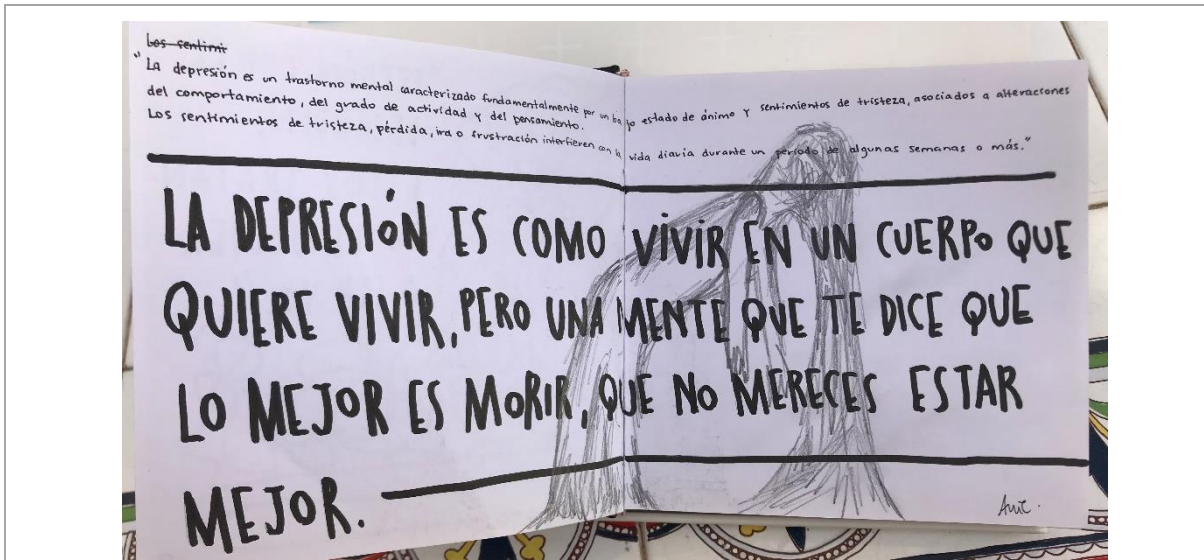 Los sentimi
"La depresión es un trastorno mental caracterizado fundamentalmente por un bajo estado de ánimo y sentimientos de tristeza, asociados a alteraciones
del comportamiento, del grado de actividad y del pensamiento.
Los sentimientos de tristeza, pérdida, ira o frustración interfieren con la vida diaria durante un período de algunas semanas o más."
LA DEPRESIÓN ES COMO VIVIR EN UN CUERPO QUE
QUIERE VIVIR, PERO UNA MENTE QUE TE DICE QUE
LO MEJOR ES MORIR, QUE NO MERECES ESTAR
MEJOR.